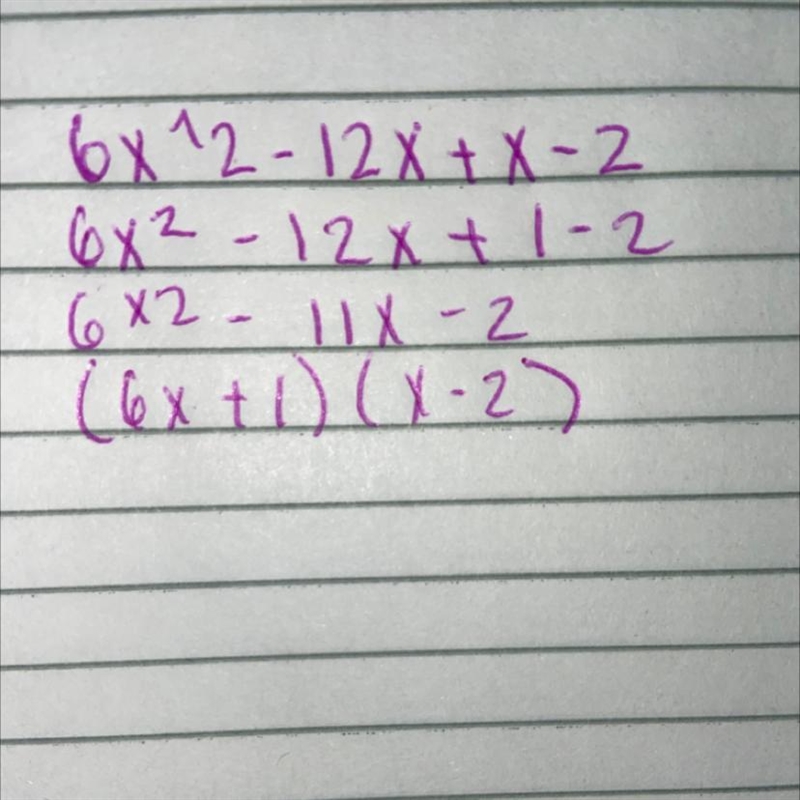 6x^2 - 12x + x - 2
6x² - 12x + 1 - 2
6x2 - 11x - 2
(6x + 1)(x - 2)